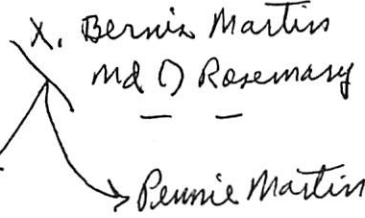 X. Bernie Martin
md 1) Rosemary
— —
Pennie Martin